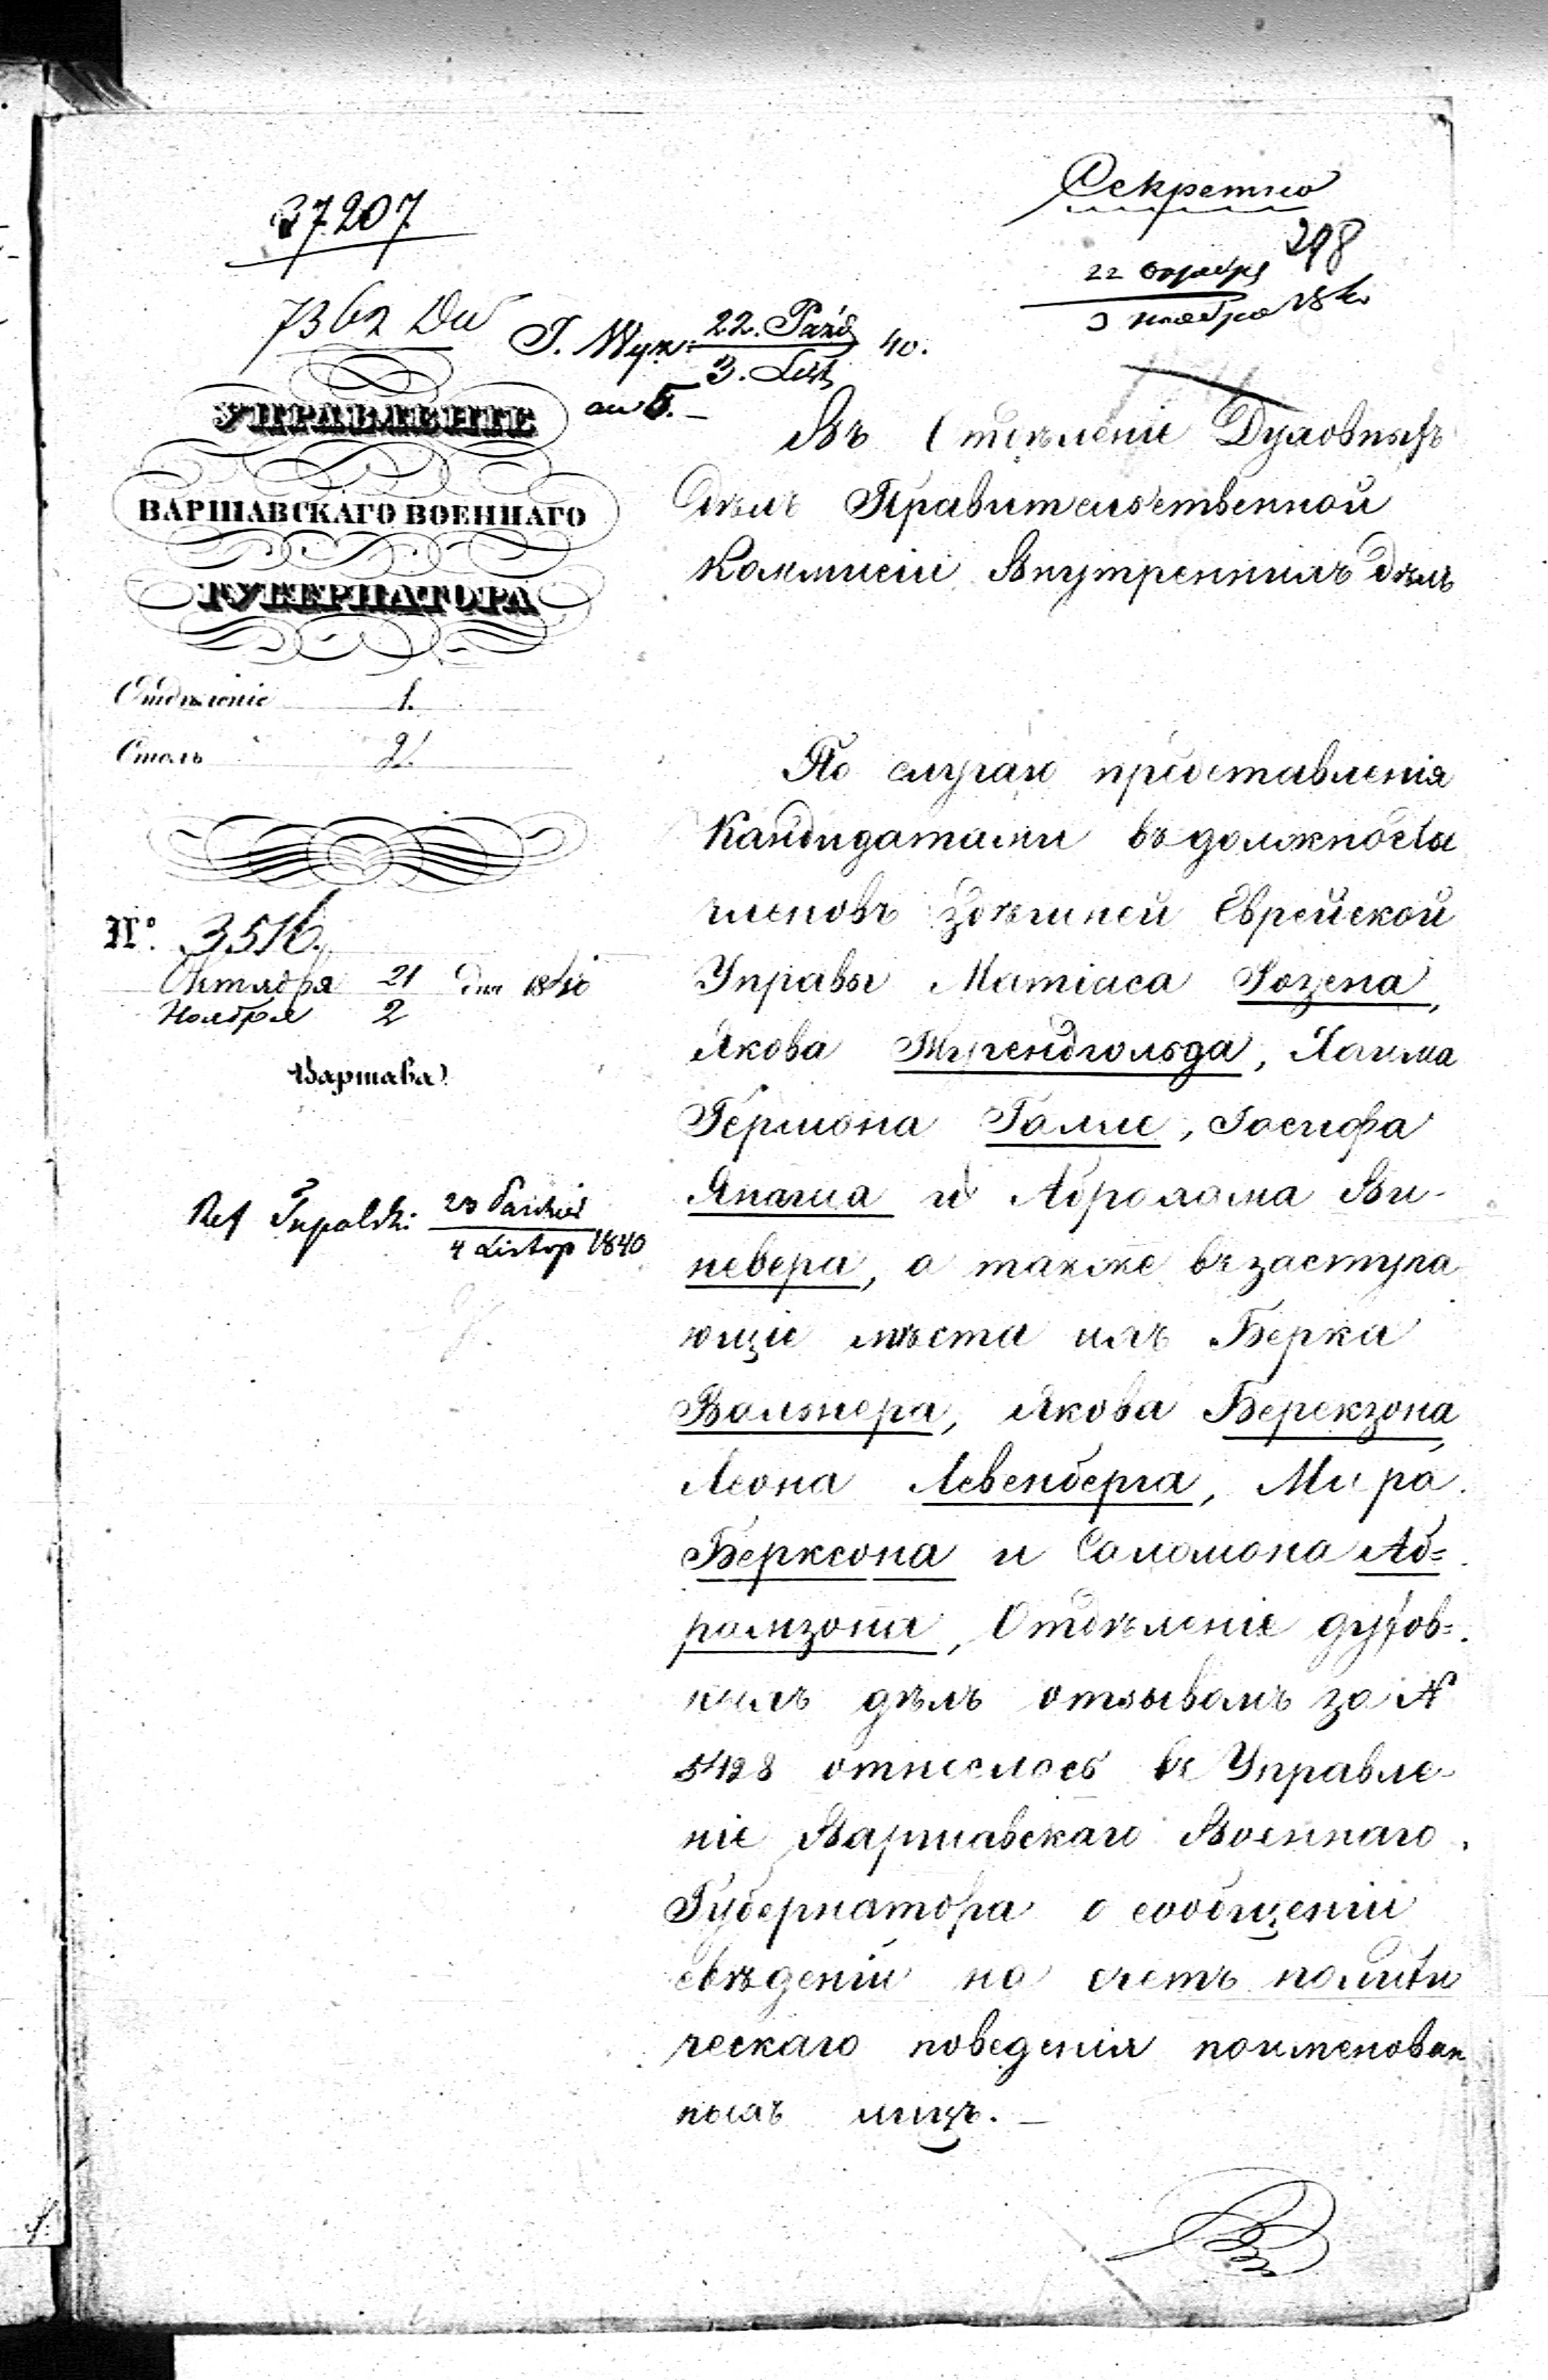 Секретно
37207
298
22 октября
3 ноября 1840
7362 Du
22. Paźd
3. List
40.
УПРАВЛЕНІЕ
ВАРШАВСКАГО ВОЕННАГО
ГУБЕРНАТОРА
Отдѣленіе 1.
Столъ 2.
№. 3516.
Октября 21 дня 1840
Ноября 2
Варшава
Ref 23 Paździer
4 Listop 1840
Въ Отдѣленіе Духовныхъ
Дѣлъ Правительственной
Коммисіи Внутреннихъ дѣлъ
По случаю представленія
Кандидатами въ должности
членовъ здѣшней Еврейской
Управы Матіаса Розена,
Якова Тугендгольда, Хаима
Германа Галле, Іосифа
Янаша и Абрагама Ви-
невера, а также въ заступа
ющіе мѣста ихъ Берка
Волжнера, Якова Берекзона,
Леона Левенберга, Мира
Берксона и Саломона Аб=
рамзона, Отдѣленіе духов=
ныхъ дѣлъ отзывомъ за №
5428 отнеслось въ Управле-
ніе Варшавскаго Военнаго
Губернатора о сообщеніи
свѣденій на счетъ полити
ческаго поведенія поименован
ныхъ лицъ. —